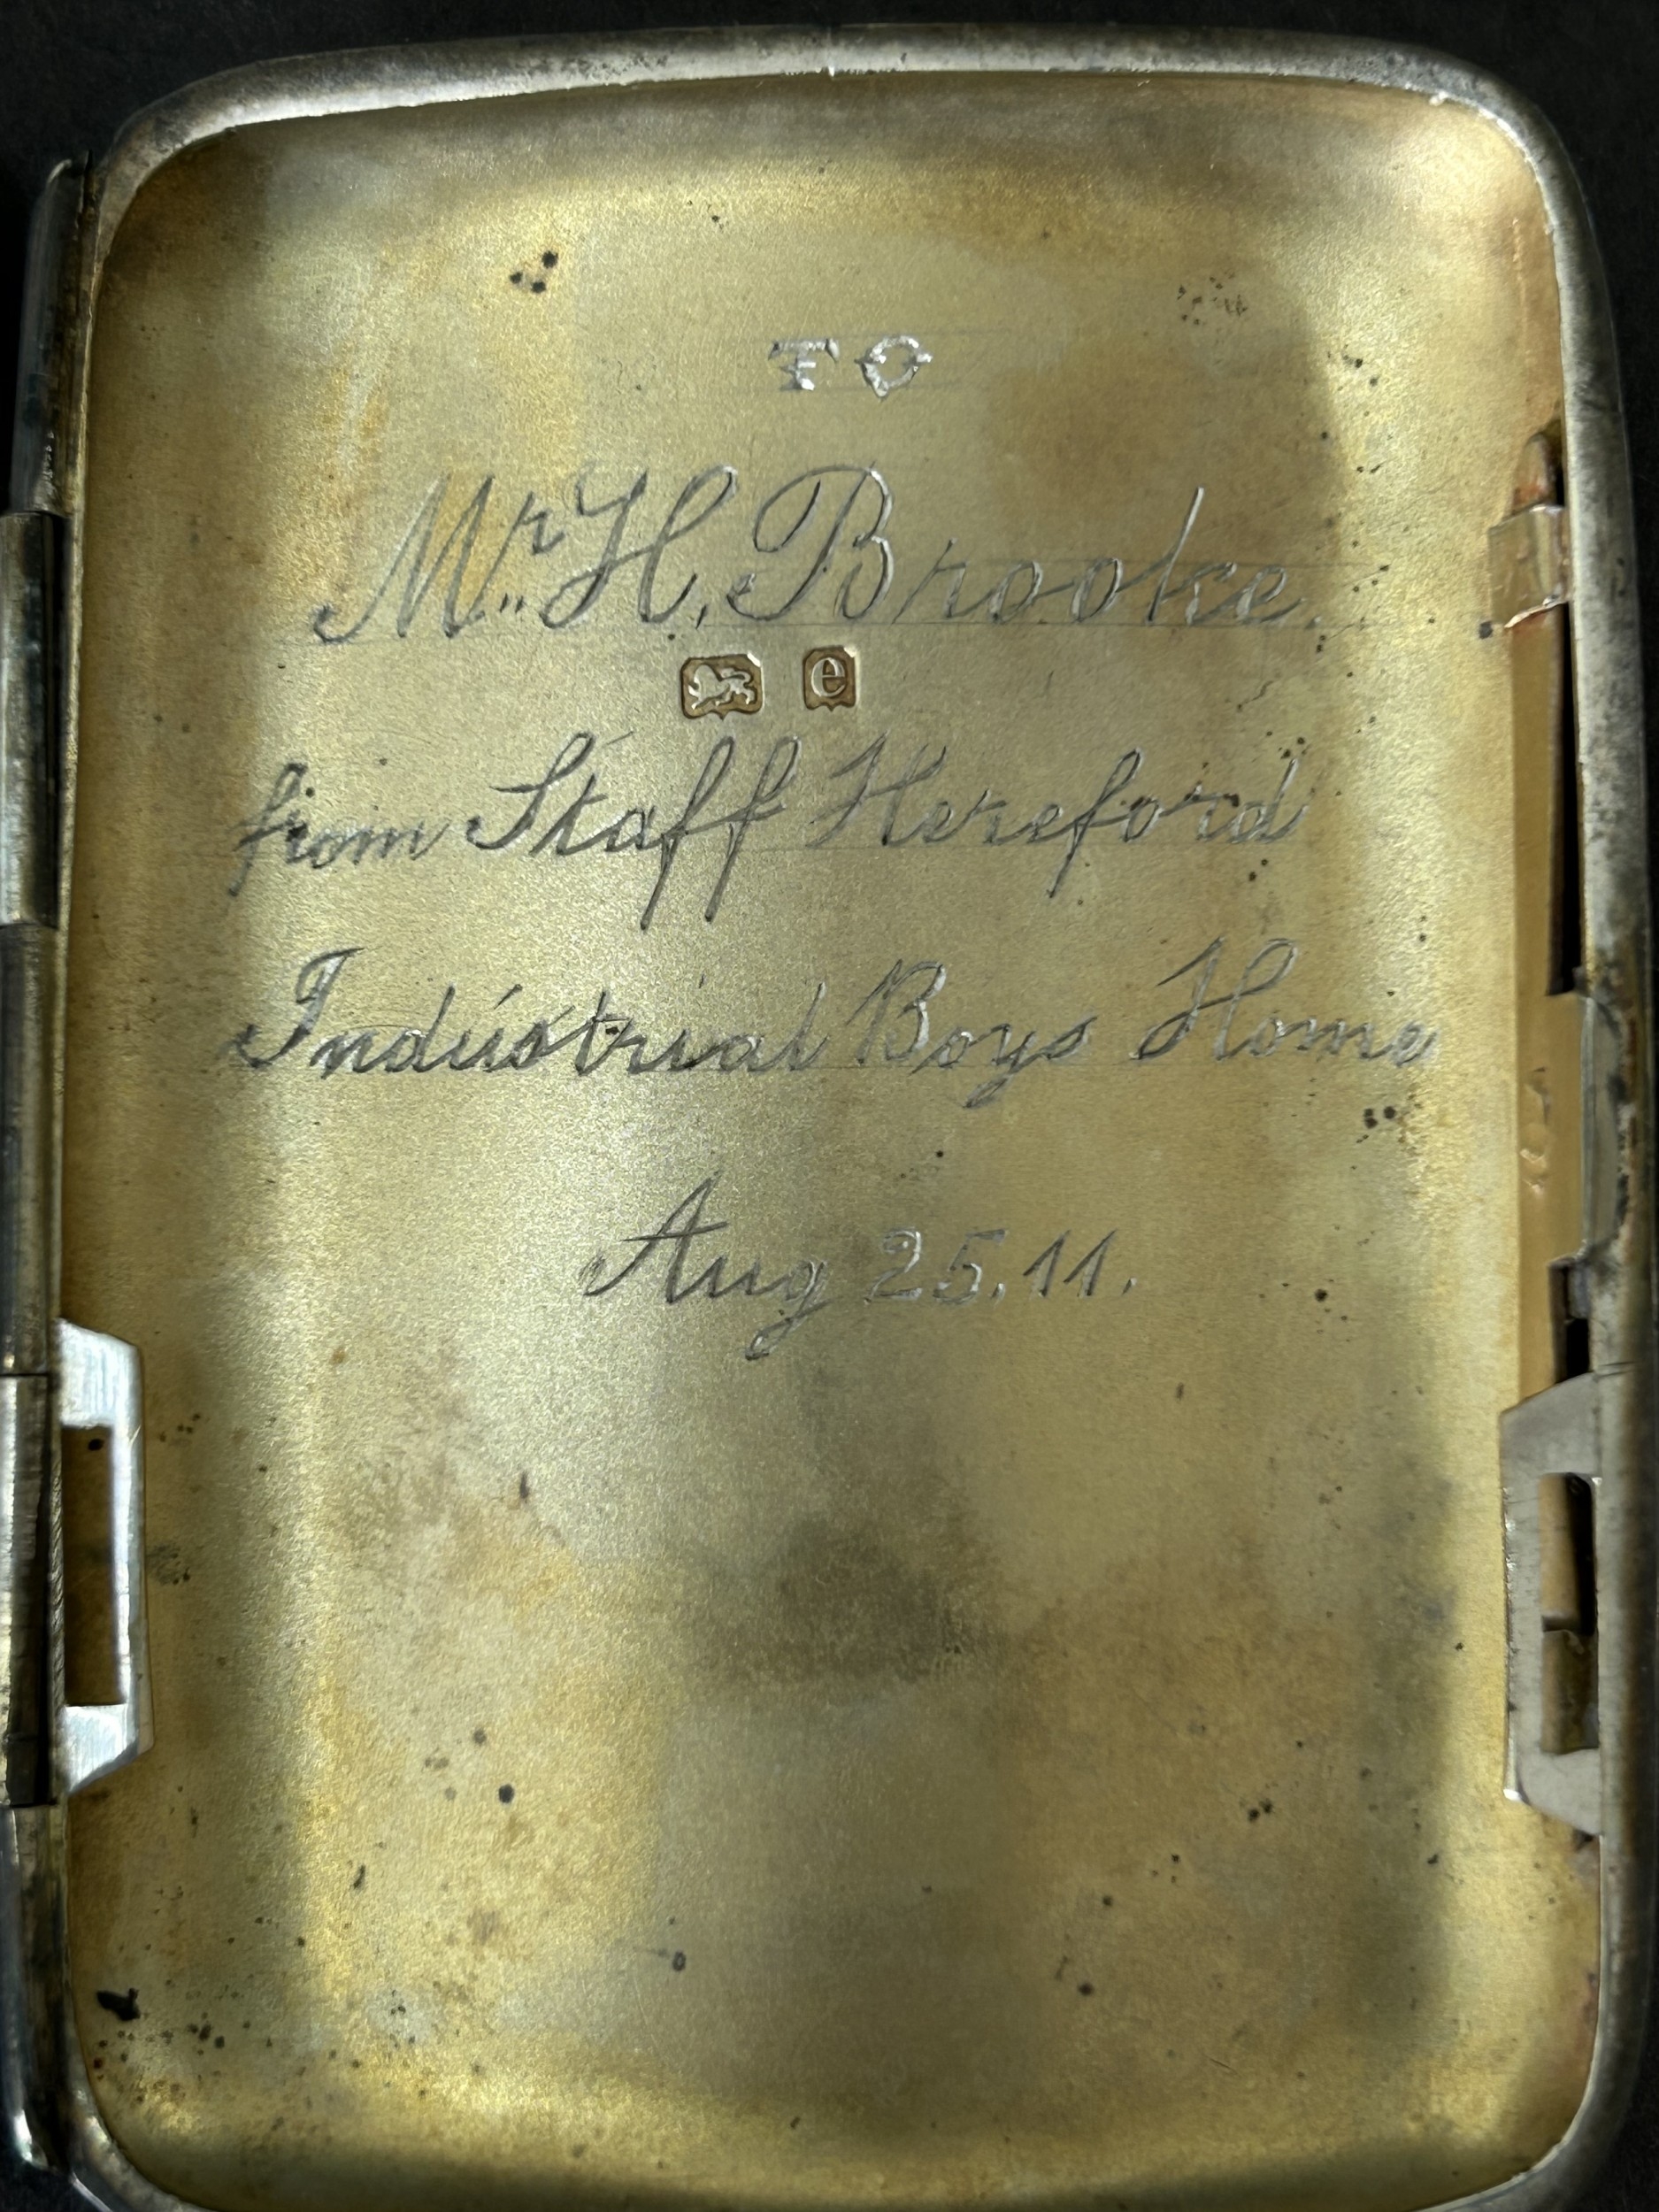 TO
Mr. H. Brooke.
e
from Staff Hereford
Industrial Boys Home
Aug 25.11.